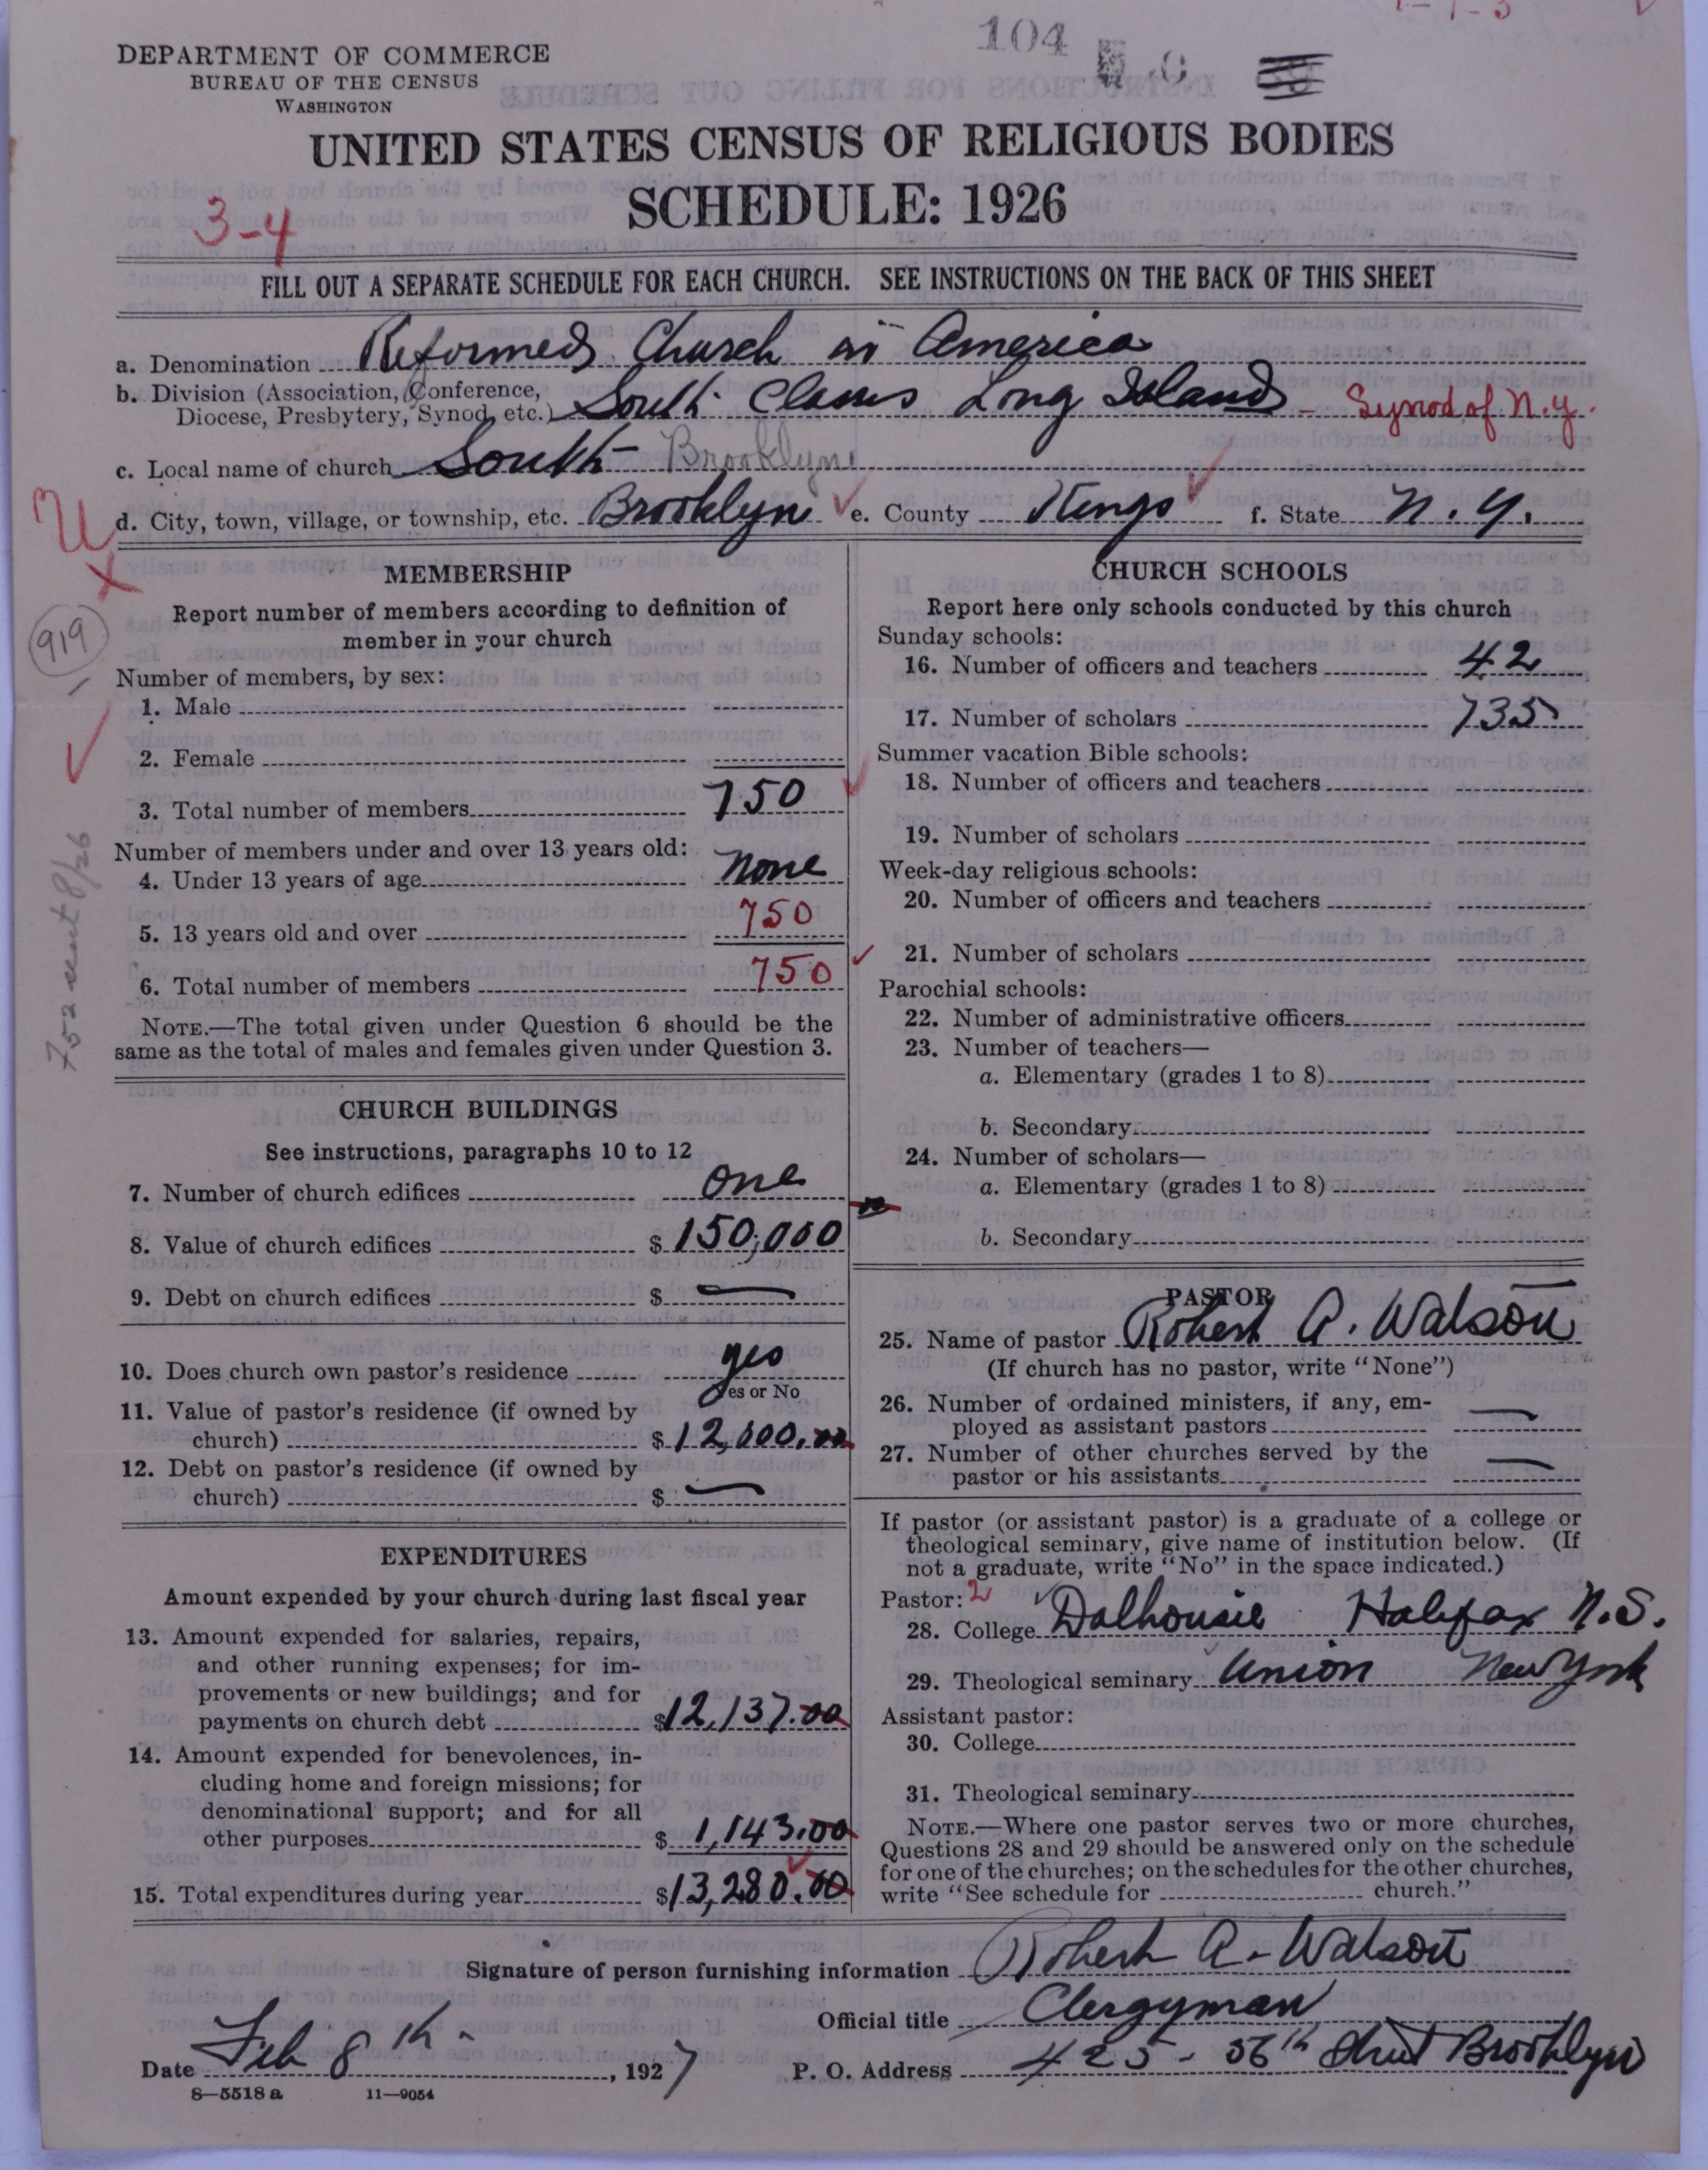 104
DEPARTMENT OF COMMERCE
BUREAU OF THE CENSUS
WASHINGTON
UNITED STATES CENSUS OF RELIGIOUS BODIES
SCHEDULE: 1926
3-4
FILL OUT A SEPARATE SCHEDULE FOR EACH CHURCH. SEE INSTRUCTIONS ON THE BACK OF THIS SHEET
a. Denomination Reformed Church in America
b. Division (Association, Conference,
Diocese, Presbytery, Synod, etc.) South Classis Long Island - Synod of N.Y.
c. Local name of church South Brooklyn
d. City, town, village, or township, etc. Brooklyn e. County Kings f. State N. Y.
U
X
919
MEMBERSHIP
Report number of members according to definition of
member in your church
Number of members, by sex:
1. Male
2. Female
3. Total number of members 750
Number of members under and over 13 years old:
4. Under 13 years of age none
5. 13 years old and over 750
6. Total number of members 750
NOTE.—The total given under Question 6 should be the
same as the total of males and females given under Question 3.
CHURCH BUILDINGS
See instructions, paragraphs 10 to 12
7. Number of church edifices one
8. Value of church edifices $ 150,000
9. Debt on church edifices $ —
10. Does church own pastor's residence yes
Yes or No
11. Value of pastor's residence (if owned by
church) $ 12,000.00
12. Debt on pastor's residence (if owned by
church) $ —
EXPENDITURES
Amount expended by your church during last fiscal year
13. Amount expended for salaries, repairs,
and other running expenses; for im-
provements or new buildings; and for
payments on church debt $12,137.00
14. Amount expended for benevolences, in-
cluding home and foreign missions; for
denominational support; and for all
other purposes $ 1,143.00
15. Total expenditures during year $13,280.00
CHURCH SCHOOLS
Report here only schools conducted by this church
Sunday schools:
16. Number of officers and teachers 42
17. Number of scholars 735
Summer vacation Bible schools:
18. Number of officers and teachers
19. Number of scholars
Week-day religious schools:
20. Number of officers and teachers
21. Number of scholars
Parochial schools:
22. Number of administrative officers
23. Number of teachers—
a. Elementary (grades 1 to 8)
b. Secondary
24. Number of scholars—
a. Elementary (grades 1 to 8)
b. Secondary
PASTOR
25. Name of pastor Robert A. Watson
(If church has no pastor, write "None")
26. Number of ordained ministers, if any, em-
ployed as assistant pastors —
27. Number of other churches served by the
pastor or his assistants —
If pastor (or assistant pastor) is a graduate of a college or
theological seminary, give name of institution below. (If
not a graduate, write "No" in the space indicated.)
Pastor: 2
28. College Dalhousie Halifax N.S.
29. Theological seminary Union New York
Assistant pastor:
30. College
31. Theological seminary
NOTE.—Where one pastor serves two or more churches,
Questions 28 and 29 should be answered only on the schedule
for one of the churches; on the schedules for the other churches,
write "See schedule for church."
Signature of person furnishing information Robert A. Watson
Official title Clergyman
Date Feb 8th , 1927 P. O. Address 425 - 56th Street Brooklyn
8—5518 a 11—9054